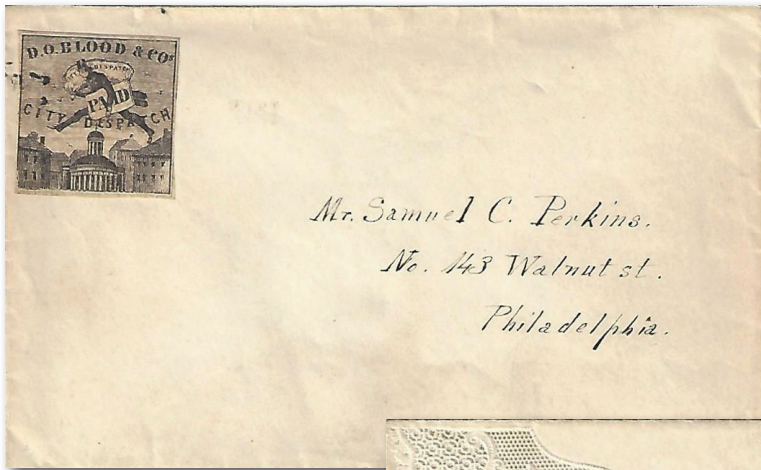 D.O.BLOOD & COs
DESPATCH
PAID
CITY DESPATCH
Mr. Samuel C. Perkins.
No. 143 Walnut st.
Philadelphia.